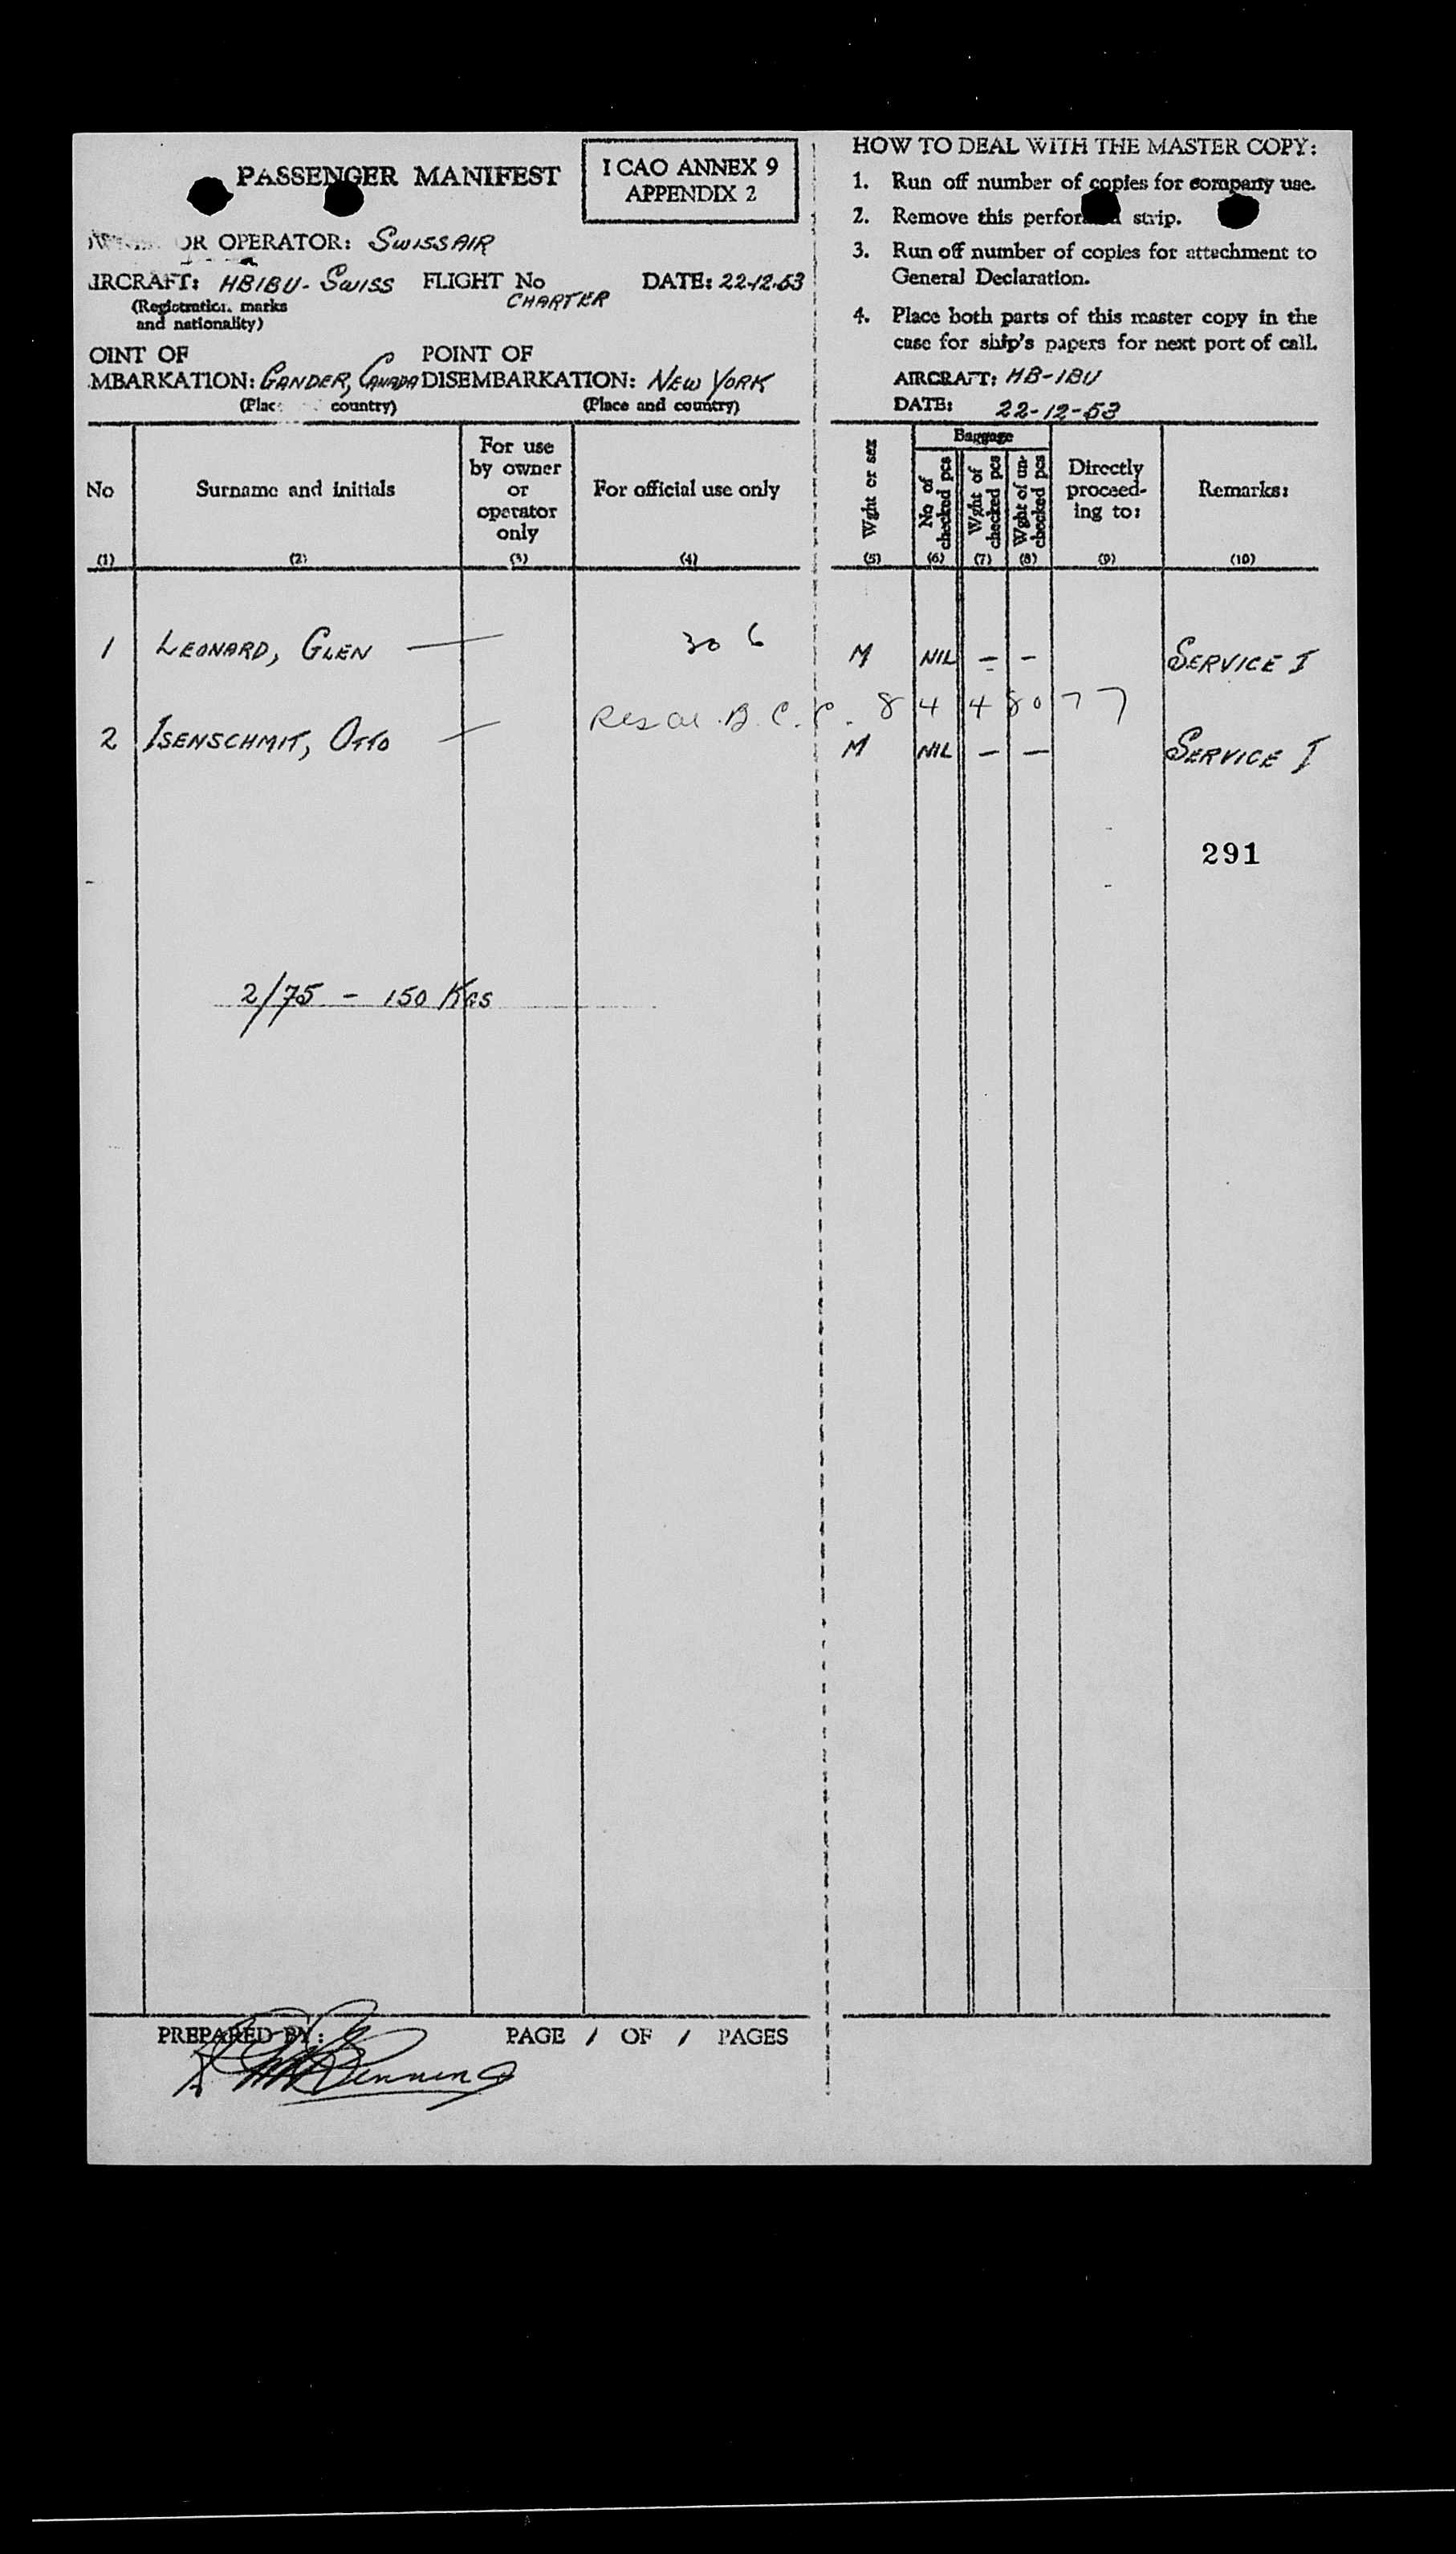 PASSENGER MANIFEST
I CAO ANNEX 9
APPENDIX 2
OR OPERATOR: SWISSAIR
IRCRAFT: HBIBU - SWISS FLIGHT No CHARTER DATE: 22-12-53
(Registration marks
and nationality)
OINT OF
MBARKATION: GANDER, CANADA
(Place country)
POINT OF
DISEMBARKATION: NEW YORK
(Place and country)
HOW TO DEAL WITH THE MASTER COPY:
1. Run off number of copies for company use.
2. Remove this perfor strip.
3. Run off number of copies for attachment to
General Declaration.
4. Place both parts of this master copy in the
case for ship's papers for next port of call.
AIRCRAFT: HB-IBU
DATE: 22-12-53
No
(1)
Surname and initials
(2)
For use
by owner
or
operator
only
(3)
For official use only
(4)
Wght or sex
(5)
Baggage
No of
checked pcs
(6)
Wght of
checked pcs
(7)
Wght of un-
checked pcs
(8)
Directly
proceed-
ing to:
(9)
Remarks:
(10)
1 LEONARD, GLEN — 306 M NIL - - SERVICE I
B.C.C. 8448077
2 ISENSCHMIT, OTTO — M NIL - - SERVICE I
291
2/75 - 150 KGS
PREPARED BY:
PAGE 1 OF 1 PAGES